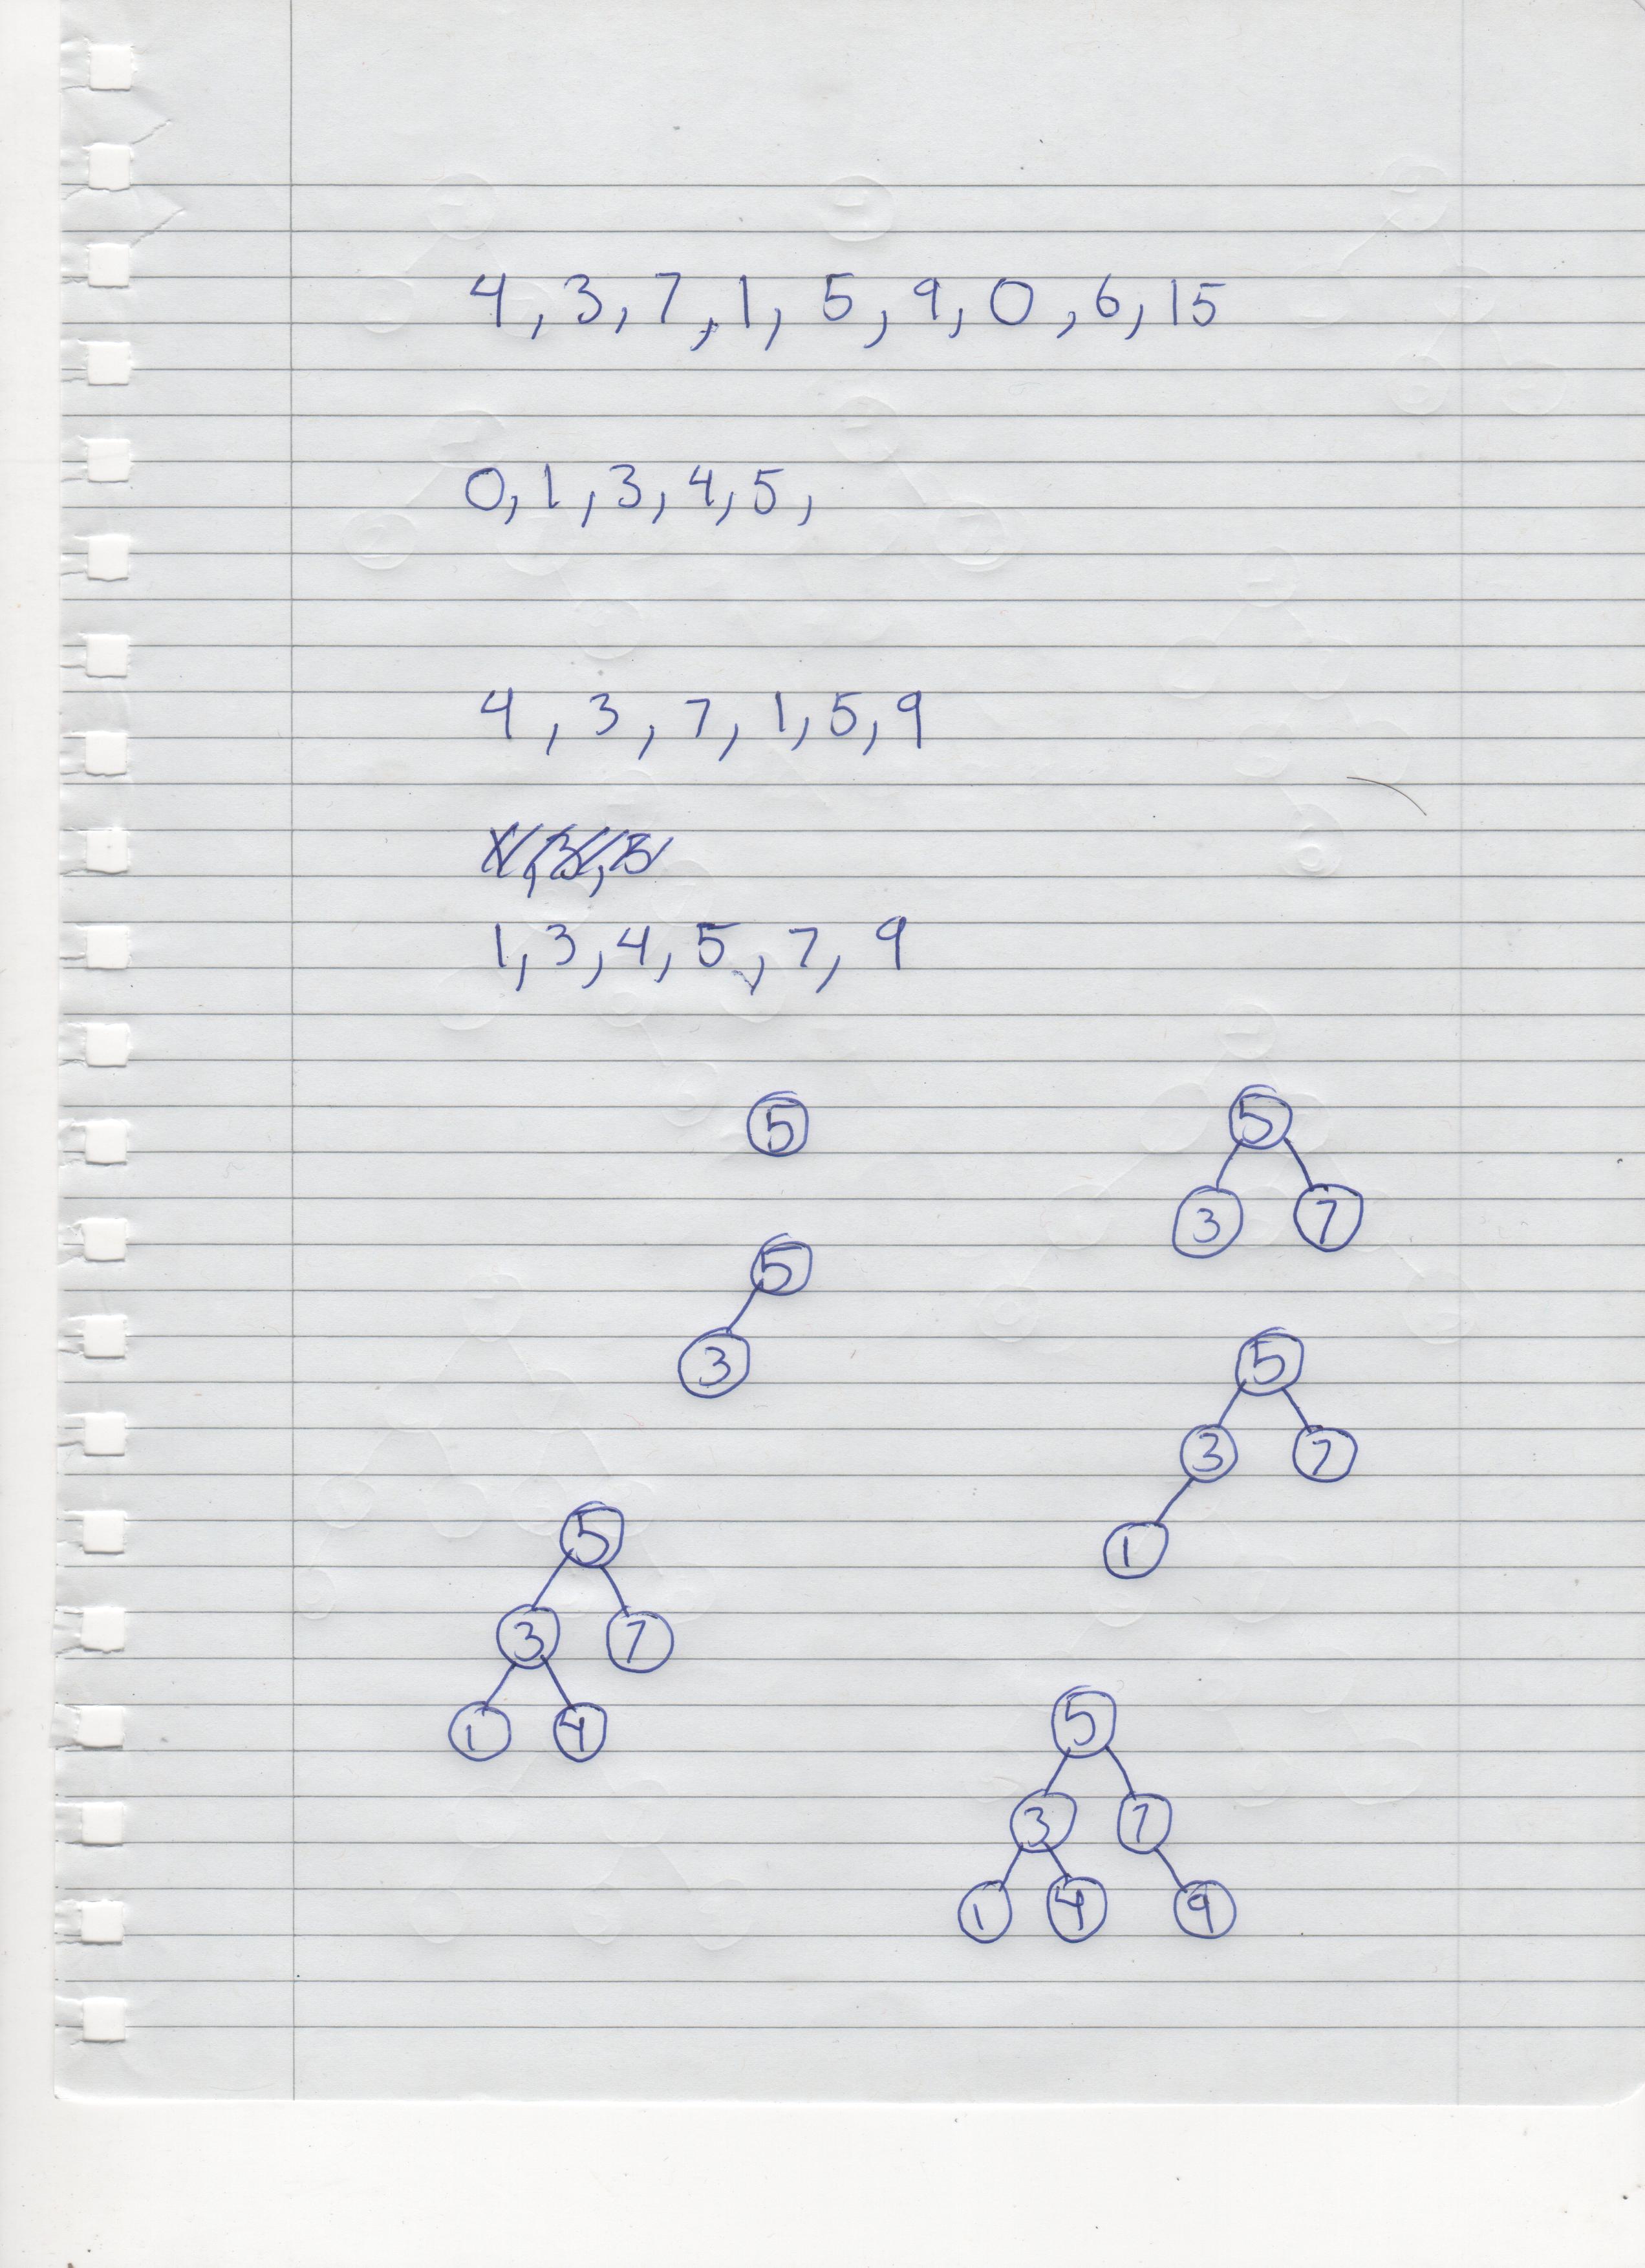 4, 3, 7, 1, 5, 9, 0, 6, 15
0, 1, 3, 4, 5,
4, 3, 7, 1, 5, 9
1, 3, 4, 5, 7, 9
5
5
3
5
3 7
5
3 7
1
5
3 7
1 4
5
3 7
1 4 9